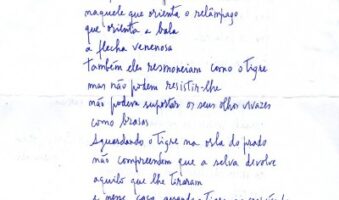 naquele que orienta o relâmpago
que orienta a bala
a flecha venenosa
também eles resmoneiam como o tigre
mas não podem resistir-lhe
não podem suportar os seus olhos vivazes
como brasas
Aguardando o tigre na orla do prado
não compreendem que a selva devolve
aquilo que lhe tiraram
e nesse caso quando o tigre